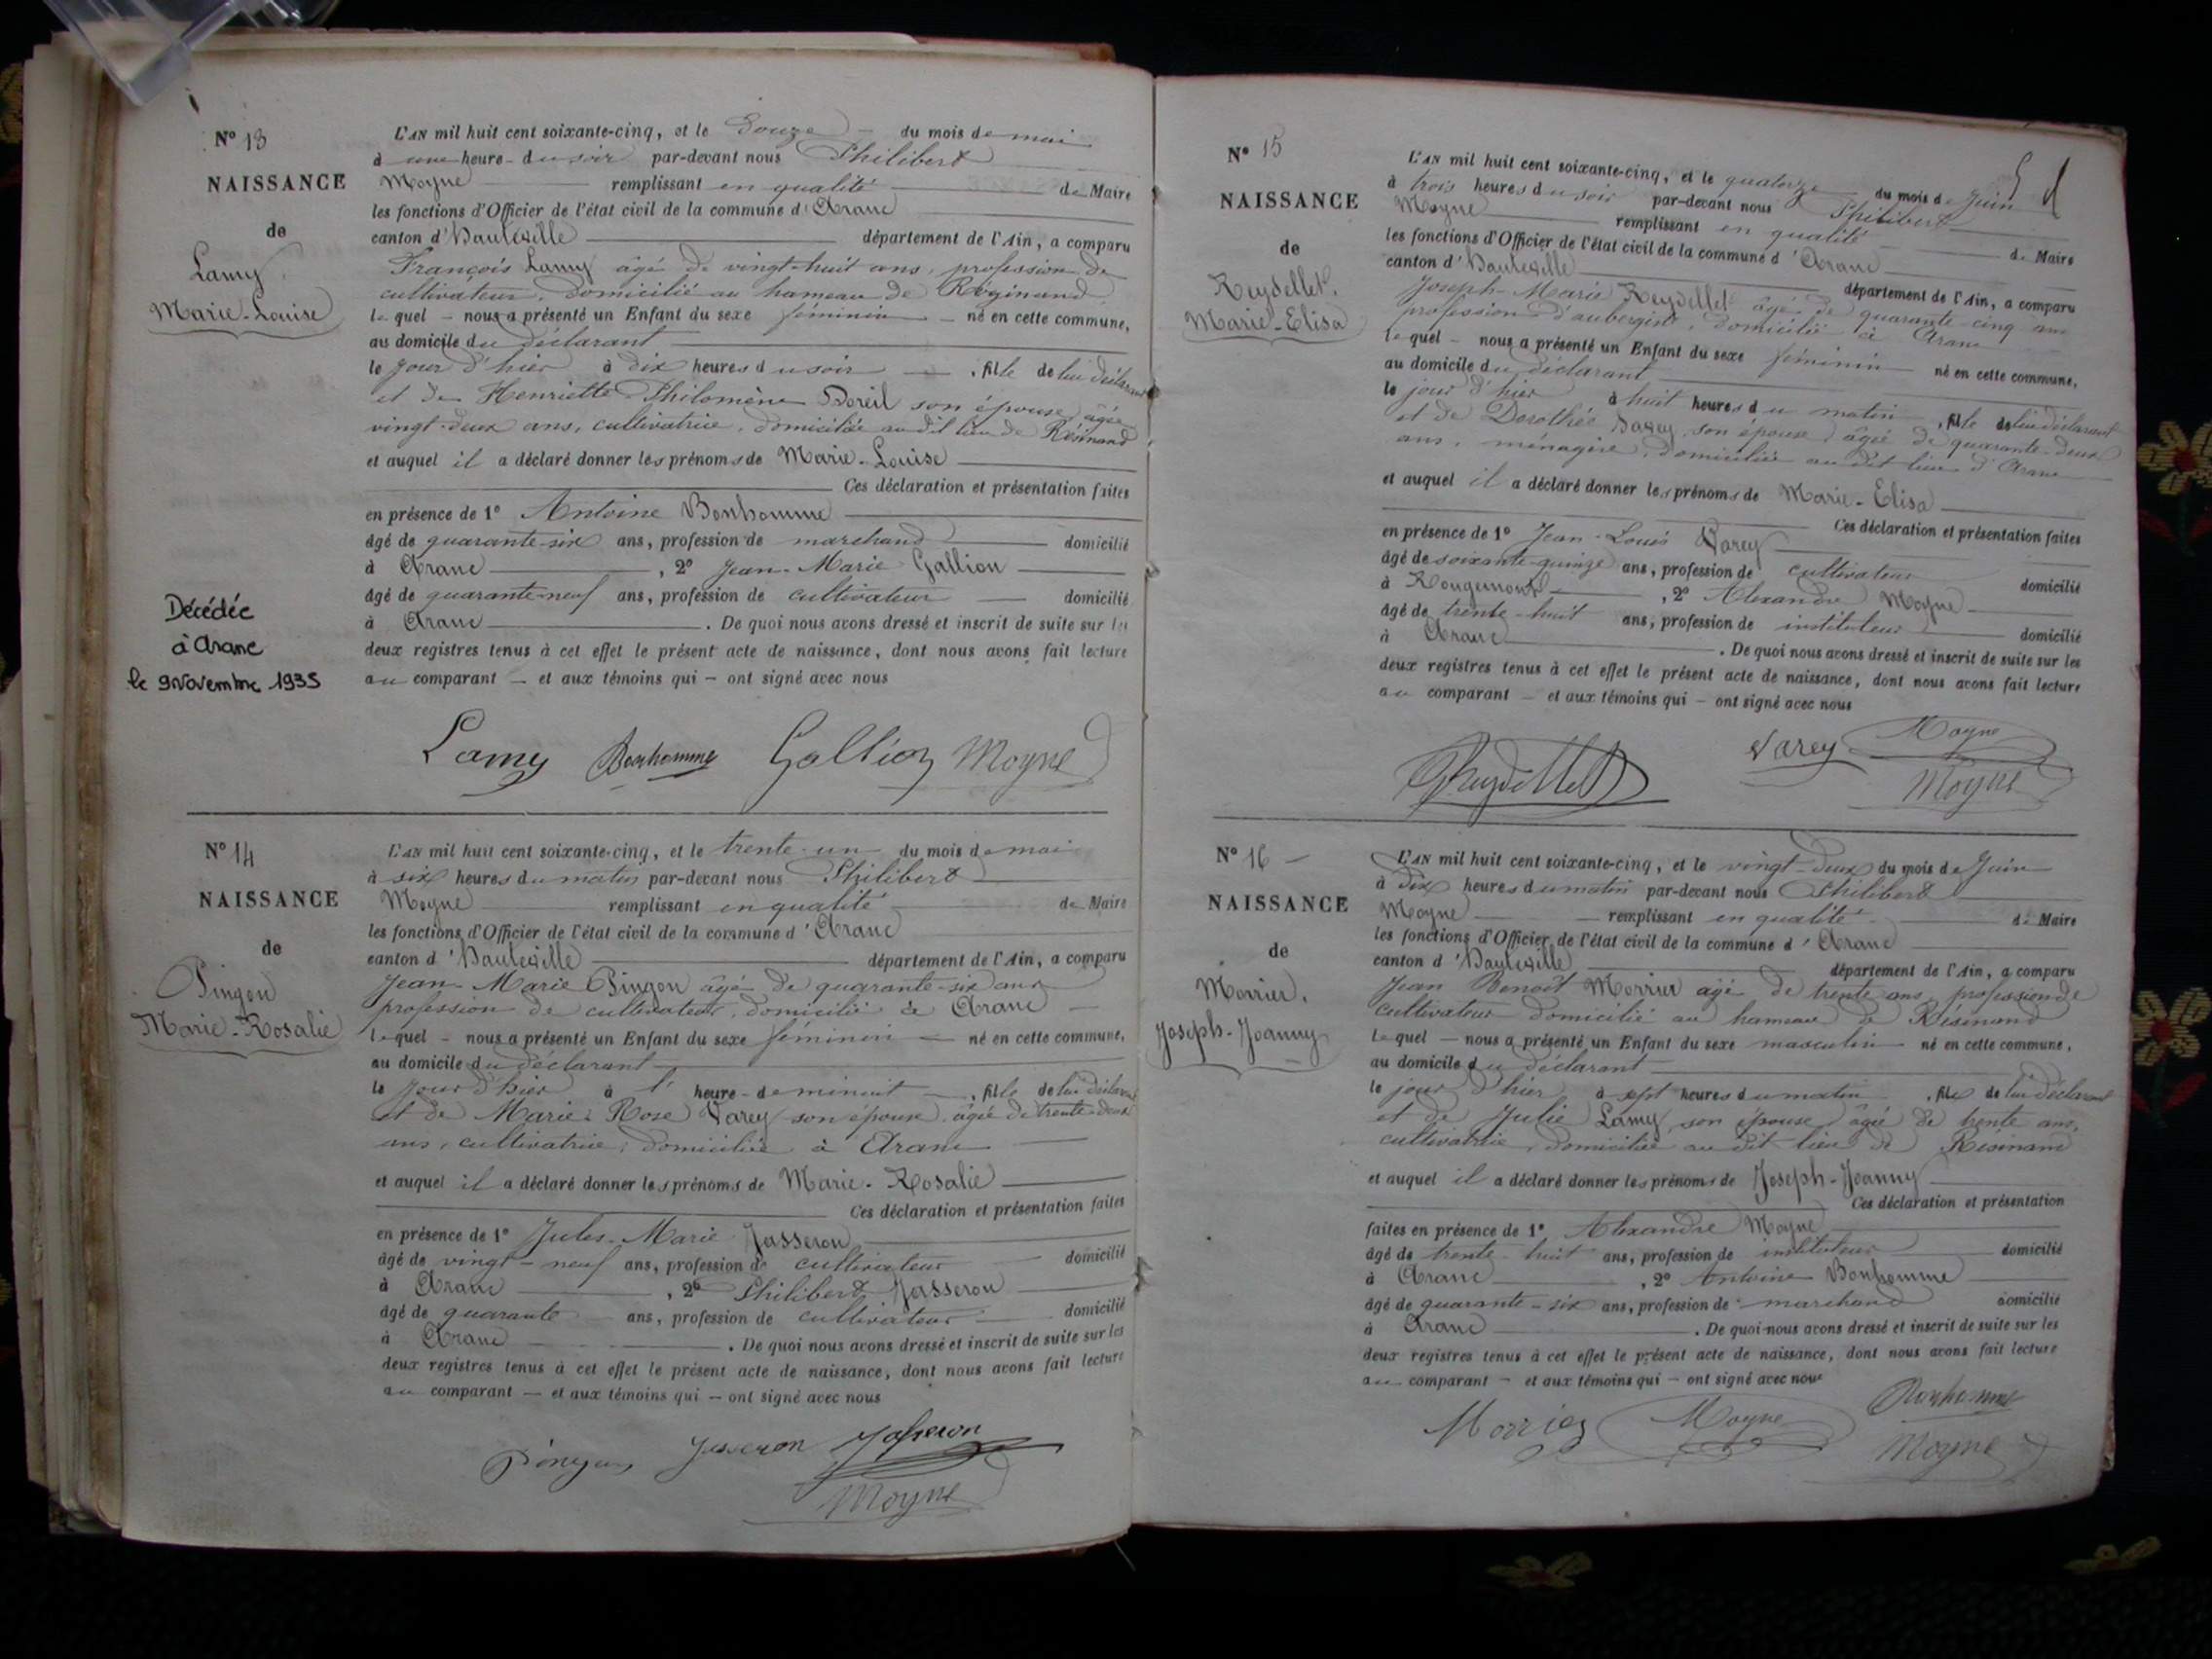 N° 13
NAISSANCE
de
Lamy
Marie-Louise
Décédée
à Aranc
le 9 Novembre 1935
L'AN mil huit cent soixante-cinq, et le douze du mois de mai
à une heure du soir par-devant nous Philibert
Moyne remplissant en qualité de Maire
les fonctions d'Officier de l'état civil de la commune d'Aranc
canton d'Hauteville département de l'Ain, a comparu
François Lamy âgé de vingt-huit ans, profession de
cultivateur, domicilié au hameau de Résinand
lequel nous a présenté un Enfant du sexe féminin né en cette commune,
au domicile du déclarant
le jour d'hier à dix heures du soir, fille de lui déclarant
et de Henriette Philomène Boreil son épouse, âgée
vingt-deux ans, cultivatrice, domiciliée au dit lieu de Résinand
et auquel il a déclaré donner les prénoms de Marie-Louise
Ces déclaration et présentation faites
en présence de 1° Antoine Bonhomme
âgé de quarante-six ans, profession de marchand domicilié
à Aranc, 2° Jean-Marie Gallion
âgé de quarante-neuf ans, profession de cultivateur domicilié
à Aranc. De quoi nous avons dressé et inscrit de suite sur les
deux registres tenus à cet effet le présent acte de naissance, dont nous avons fait lecture
au comparant et aux témoins qui ont signé avec nous
Lamy Bonhomme Gallion Moyne
N° 14
NAISSANCE
de
Pingon
Marie-Rosalie
L'AN mil huit cent soixante-cinq, et le trente-un du mois de mai
à six heures du matin par-devant nous Philibert
Moyne remplissant en qualité de Maire
les fonctions d'Officier de l'état civil de la commune d'Aranc
canton d'Hauteville département de l'Ain, a comparu
Jean-Marie Pingon âgé de quarante-six ans
profession de cultivateur, domicilié à Aranc
lequel nous a présenté un Enfant du sexe féminin né en cette commune,
au domicile du déclarant
le jour d'hier à l'heure de minuit, fille de lui déclarant
et de Marie-Rose Varey son épouse, âgée de trente-deux
ans, cultivatrice, domiciliée à Aranc
et auquel il a déclaré donner les prénoms de Marie-Rosalie
Ces déclaration et présentation faites
en présence de 1° Jules-Marie Jasseron
âgé de vingt-neuf ans, profession de cultivateur domicilié
à Aranc, 2° Philibert Jasseron
âgé de quarante ans, profession de cultivateur domicilié
à Aranc. De quoi nous avons dressé et inscrit de suite sur les
deux registres tenus à cet effet le présent acte de naissance, dont nous avons fait lecture
au comparant et aux témoins qui ont signé avec nous
Pingon Jasseron Jasseron
Moyne
N° 15
NAISSANCE
de
Reydellet.
Marie-Elisa
L'AN mil huit cent soixante-cinq, et le quatorze du mois de Juin
à trois heures du soir par-devant nous Philibert
Moyne remplissant en qualité de Maire
les fonctions d'Officier de l'état civil de la commune d'Aranc
canton d'Hauteville département de l'Ain, a comparu
Joseph-Marie Reydellet âgé de quarante-cinq ans
profession d'aubergiste, domicilié à Aranc
lequel nous a présenté un Enfant du sexe féminin né en cette commune,
au domicile du déclarant
le jour d'hier à huit heures du matin, fille de lui déclarant
et de Dorothée Savey, son épouse, âgée de quarante-deux
ans, ménagère, domiciliée au dit lieu d'Aranc
et auquel il a déclaré donner les prénoms de Marie-Elisa
Ces déclaration et présentation faites
en présence de 1° Jean-Louis Varey
âgé de soixante-quinze ans, profession de cultivateur domicilié
à Rougemont, 2° Alexandre Moyne
âgé de trente-huit ans, profession de instituteur domicilié
à Aranc. De quoi nous avons dressé et inscrit de suite sur les
deux registres tenus à cet effet le présent acte de naissance, dont nous avons fait lecture
au comparant et aux témoins qui ont signé avec nous
Reydellet Varey Moyne
Moyne
N° 16
NAISSANCE
de
Morrier.
Joseph-Joanny
L'AN mil huit cent soixante-cinq, et le vingt-deux du mois de Juin
à dix heures du matin par-devant nous Philibert
Moyne remplissant en qualité de Maire
les fonctions d'Officier de l'état civil de la commune d'Aranc
canton d'Hauteville département de l'Ain, a comparu
Jean Benoît Morrier âgé de trente ans, profession de
cultivateur domicilié au hameau de Résinand
lequel nous a présenté un Enfant du sexe masculin né en cette commune,
au domicile du déclarant
le jour d'hier à sept heures du matin, fils de lui déclarant
et de Julie Lamy, son épouse, âgée de trente ans,
cultivatrice, domiciliée au dit lieu de Résinand
et auquel il a déclaré donner les prénoms de Joseph-Joanny
Ces déclaration et présentation
faites en présence de 1° Alexandre Moyne
âgé de trente-huit ans, profession de instituteur domicilié
à Aranc, 2° Antoine Bonhomme
âgé de quarante-six ans, profession de marchand domicilié
à Aranc. De quoi nous avons dressé et inscrit de suite sur les
deux registres tenus à cet effet le présent acte de naissance, dont nous avons fait lecture
au comparant et aux témoins qui ont signé avec nous
Morrier Moyne Bonhomme
Moyne